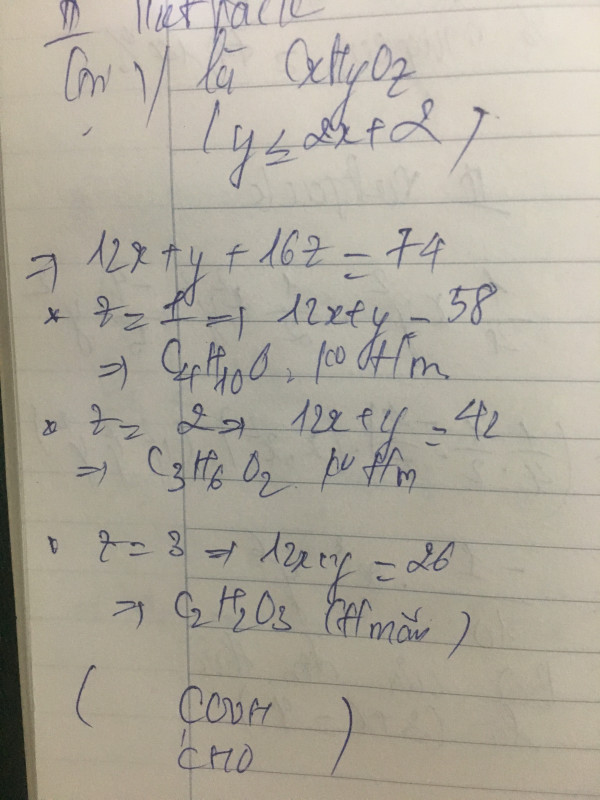 II
là CxHyOz
( y ≤ 2x + 2 )
⇒ 12x + y + 16z = 74
* z = 1 ⇒ 12x + y = 58
⇒ C4H10O.
* z = 2 ⇒ 12x + y = 42
⇒ C3H6O2.
* z = 3 ⇒ 12x + y = 26
⇒ C2H2O3
( COOH
CHO )